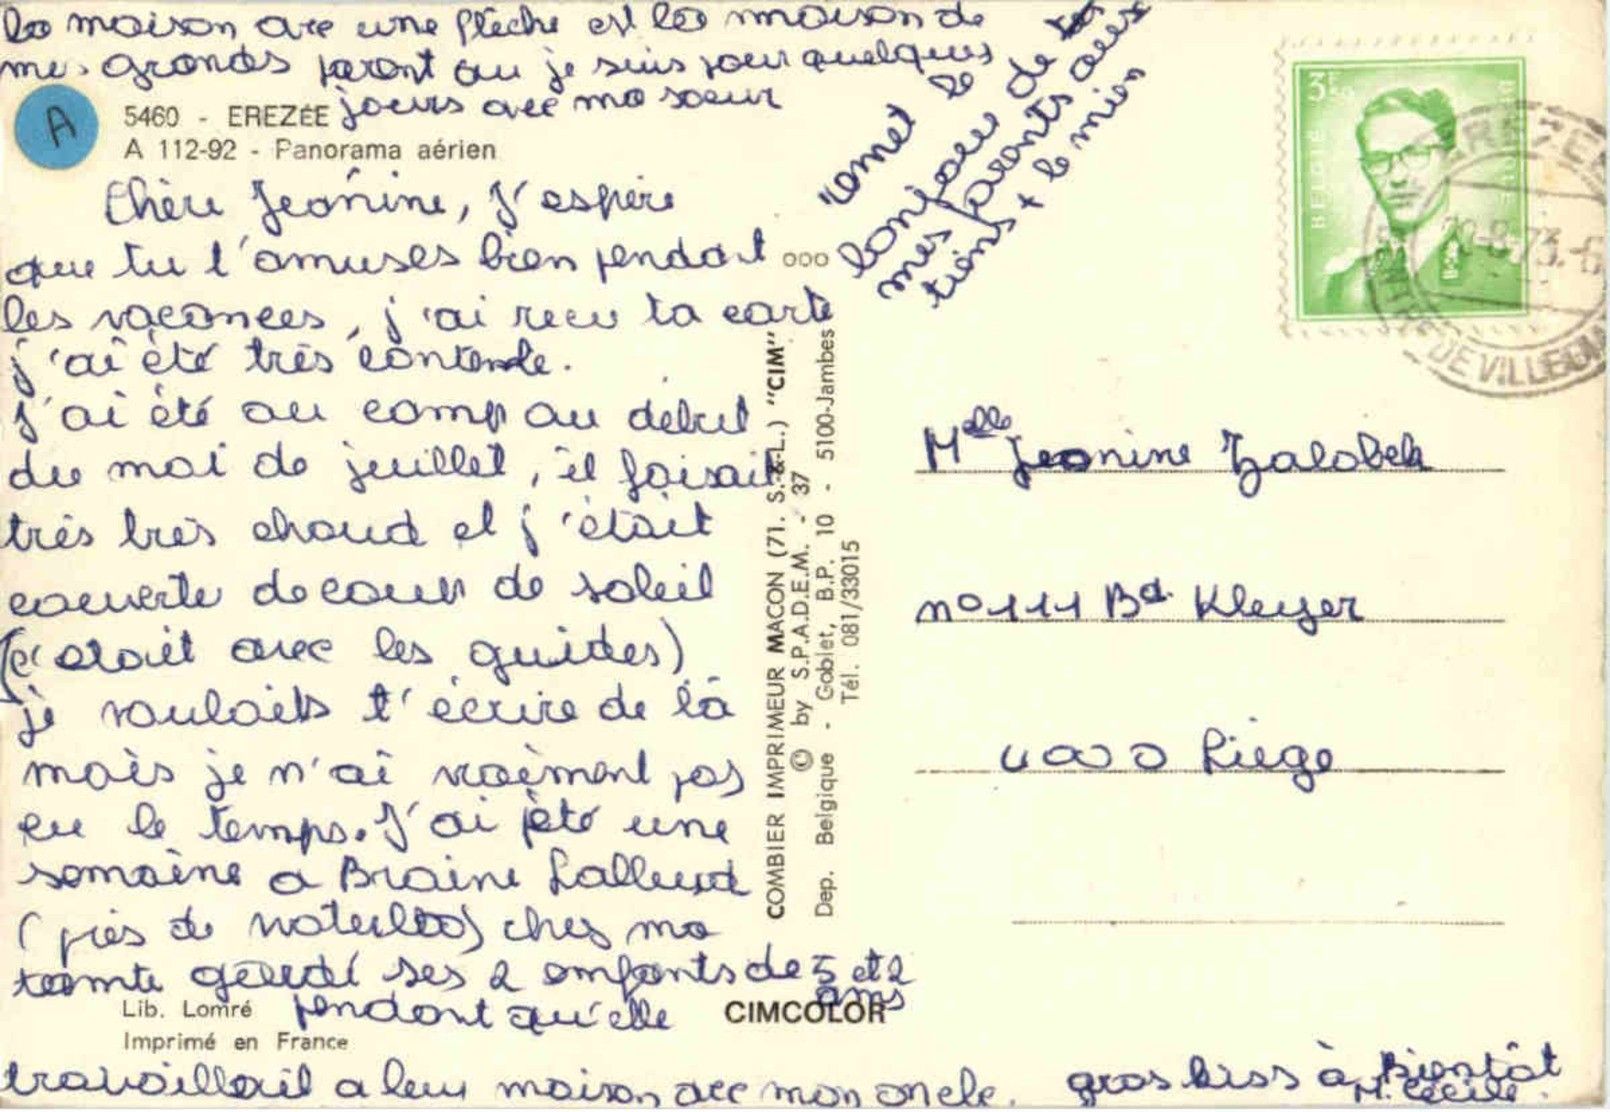 la maison avec une flèche est la maison de
mes grands parent ou je suis pour quelques
jours avec ma soeur
A
5460 - EREZÉE
A 112-92 - Panorama aérien
Chère Jeanine, j'espère
que tu t'amuses bien pendant
les vacances, j'ai recu ta carte
j'ai été très contente.
J'ai été au camp au début
du moi de juillet, il faisait
très très chaud et j'était
couverte de coup de soleil
(c'etait avec les guides)
je voulait t'écrire de là
mais je n'ai vraiment pas
eu le temps. J'ai été une
semaine a Braine Lalleud
(près de Waterloo) chez ma
tante gardé ses 2 enfants de 5 et 2
ans
pendant qu'elle
travaillait a leur maison avec mon oncle. gros biss à Bientôt
M. Cécile.
Lib. Lomré
Imprimé en France
CIMCOLOR
COMBIER IMPRIMEUR MACON (71. S.-&-L.) "CIM"
© by S.P.A.D.E.M. - 37
Dep. Belgique - Goblet, B.P. 10 - 5100-Jambes
Tél. 081/33015
ooo
"emet le
bonjour de
mes parents aux
tiens + le mien
3F50
BELGIE
BELGIQUE
EREZEE
-8-73.-6
DE VILLEGIA
Melle Jeanine Zalobek
no 111 Bd. Kleyer
4000 Liège